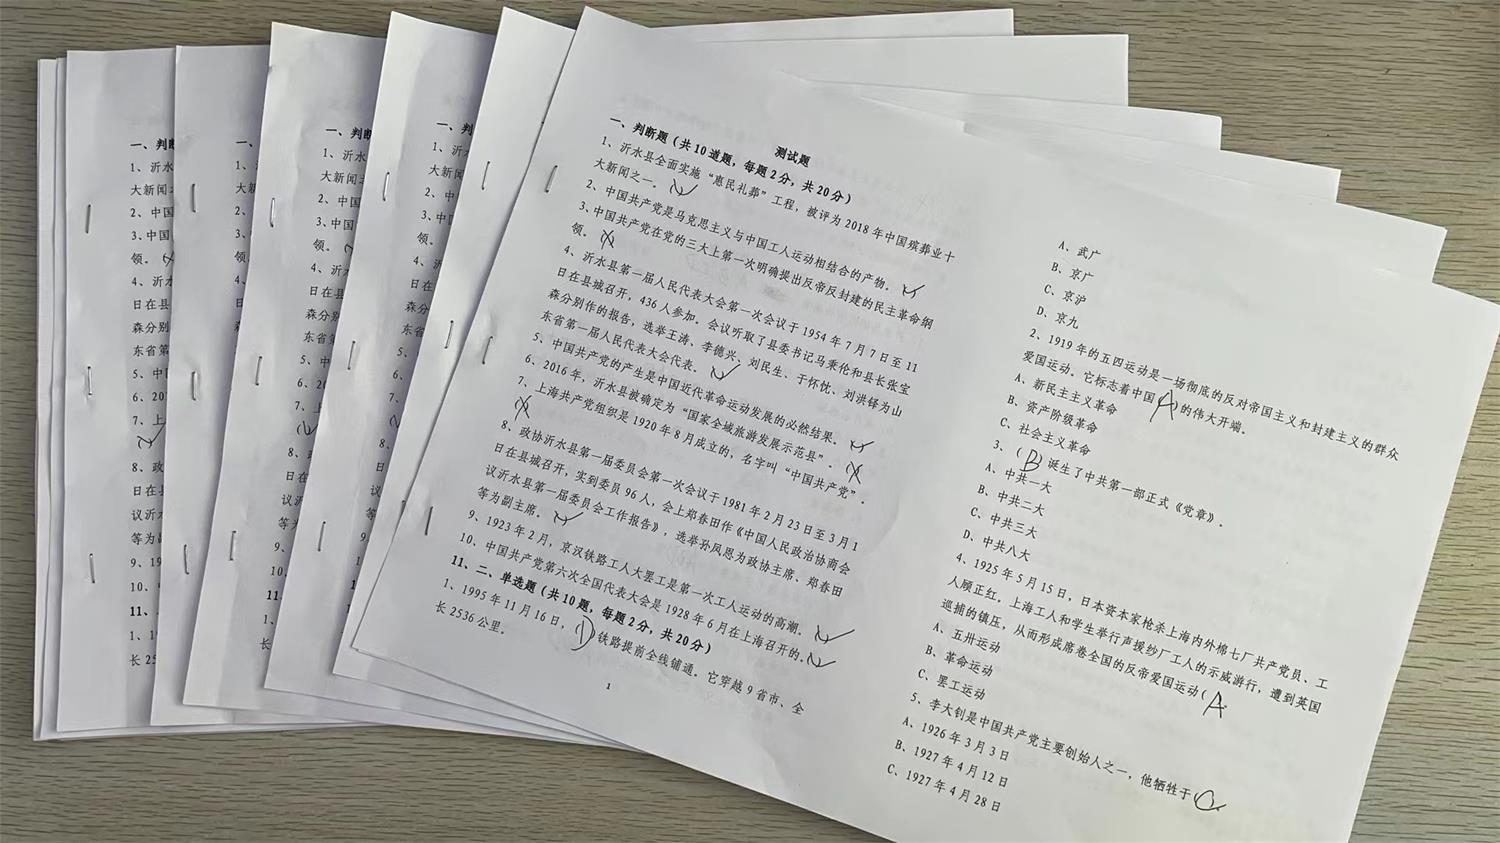 测试题
一、判断题（共10道题，每题2分，共20分）
1、沂水县全面实施“惠民礼葬”工程，被评为2018年中国殡葬业十
大新闻之一。✓
2、中国共产党是马克思主义与中国工人运动相结合的产物。✓
3、中国共产党在党的三大上第一次明确提出反帝反封建的民主革命纲
领。✗
4、沂水县第一届人民代表大会第一次会议于1954年7月7日至11
日在县城召开，436人参加。会议听取了县委书记马秉伦和县长张宝
森分别作的报告，选举王涛、李德兴、刘民生、于怀忱、刘洪铎为山
东省第一届人民代表大会代表。✓
5、中国共产党的产生是中国近代革命运动发展的必然结果。✓
6、2016年，沂水县被确定为“国家全域旅游发展示范县”。✗
7、上海共产党组织是1920年8月成立的，名字叫“中国共产党”。
✗
8、政协沂水县第一届委员会第一次会议于1981年2月23日至3月1
日在县城召开，实到委员96人，会上郑春田作《中国人民政治协商会
议沂水县第一届委员会工作报告》，选举孙凤恩为政协主席、郑春田
等为副主席。✓
9、1923年2月，京汉铁路工人大罢工是第一次工人运动的高潮。✓
10、中国共产党第六次全国代表大会是1928年6月在上海召开的。✓
11、二、单选题（共10题，每题2分，共20分）
1、1995年11月16日，（ ）铁路提前全线铺通。它穿越9省市、全
长2536公里。
1
A、武广
B、京广
C、京沪
D、京九
2、1919年的五四运动是一场彻底的反对帝国主义和封建主义的群众
爱国运动。它标志着中国（A）的伟大开端。
A、新民主主义革命
B、资产阶级革命
C、社会主义革命
3、（B）诞生了中共第一部正式《党章》。
A、中共一大
B、中共二大
C、中共三大
D、中共八大
4、1925年5月15日，日本资本家枪杀上海内外棉七厂共产党员、工
人顾正红。上海工人和学生举行声援纱厂工人的示威游行，遭到英国
巡捕的镇压，从而形成席卷全国的反帝爱国运动（A
A、五卅运动
B、革命运动
C、罢工运动
5、李大钊是中国共产党主要创始人之一，他牺牲于（C）。
A、1926年3月3日
B、1927年4月12日
C、1927年4月28日